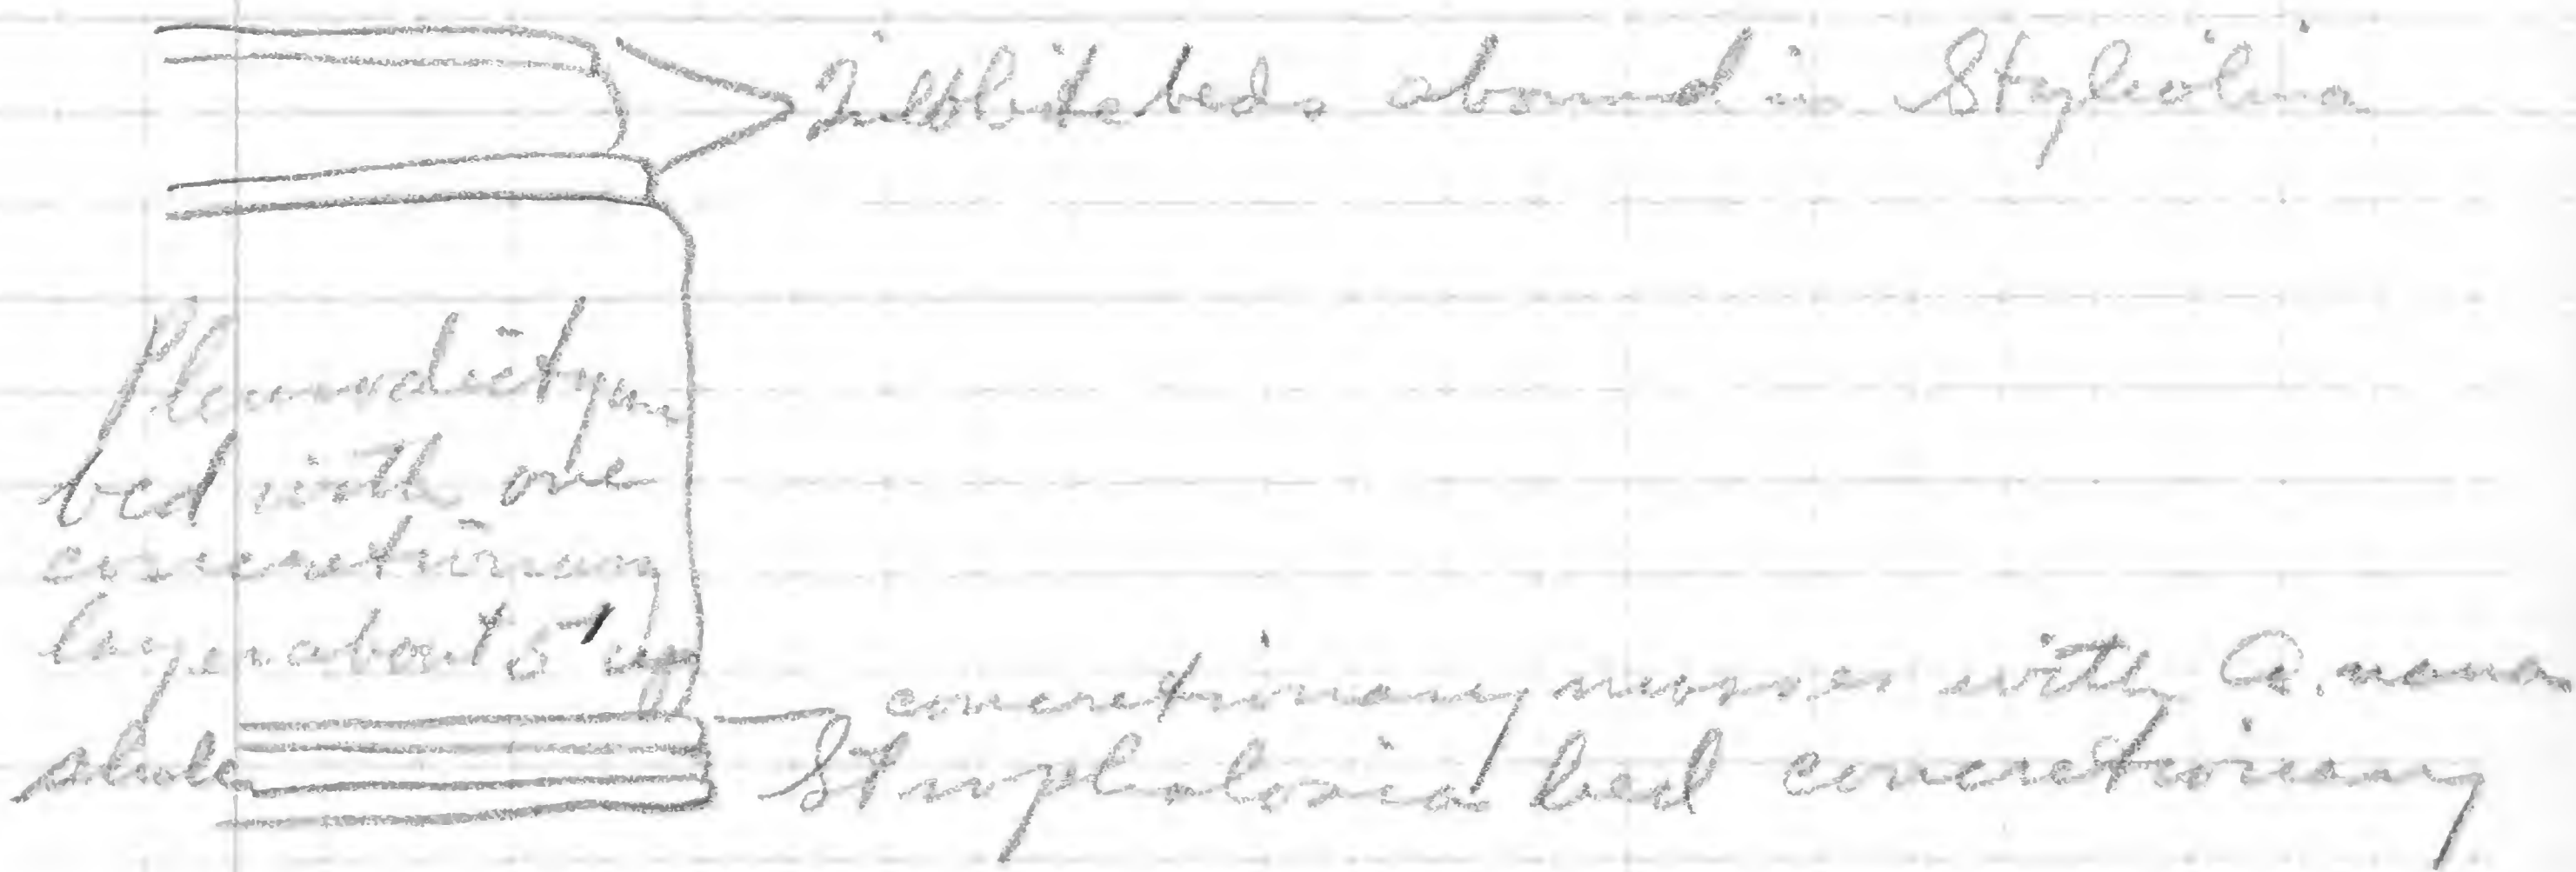 Trilobite beds abound in Styliolina
Pleurodictyum
bed with one
concretionary
layer about 5" up
concretionary masses with A. nana
shale
Strophalosia bed concretionary